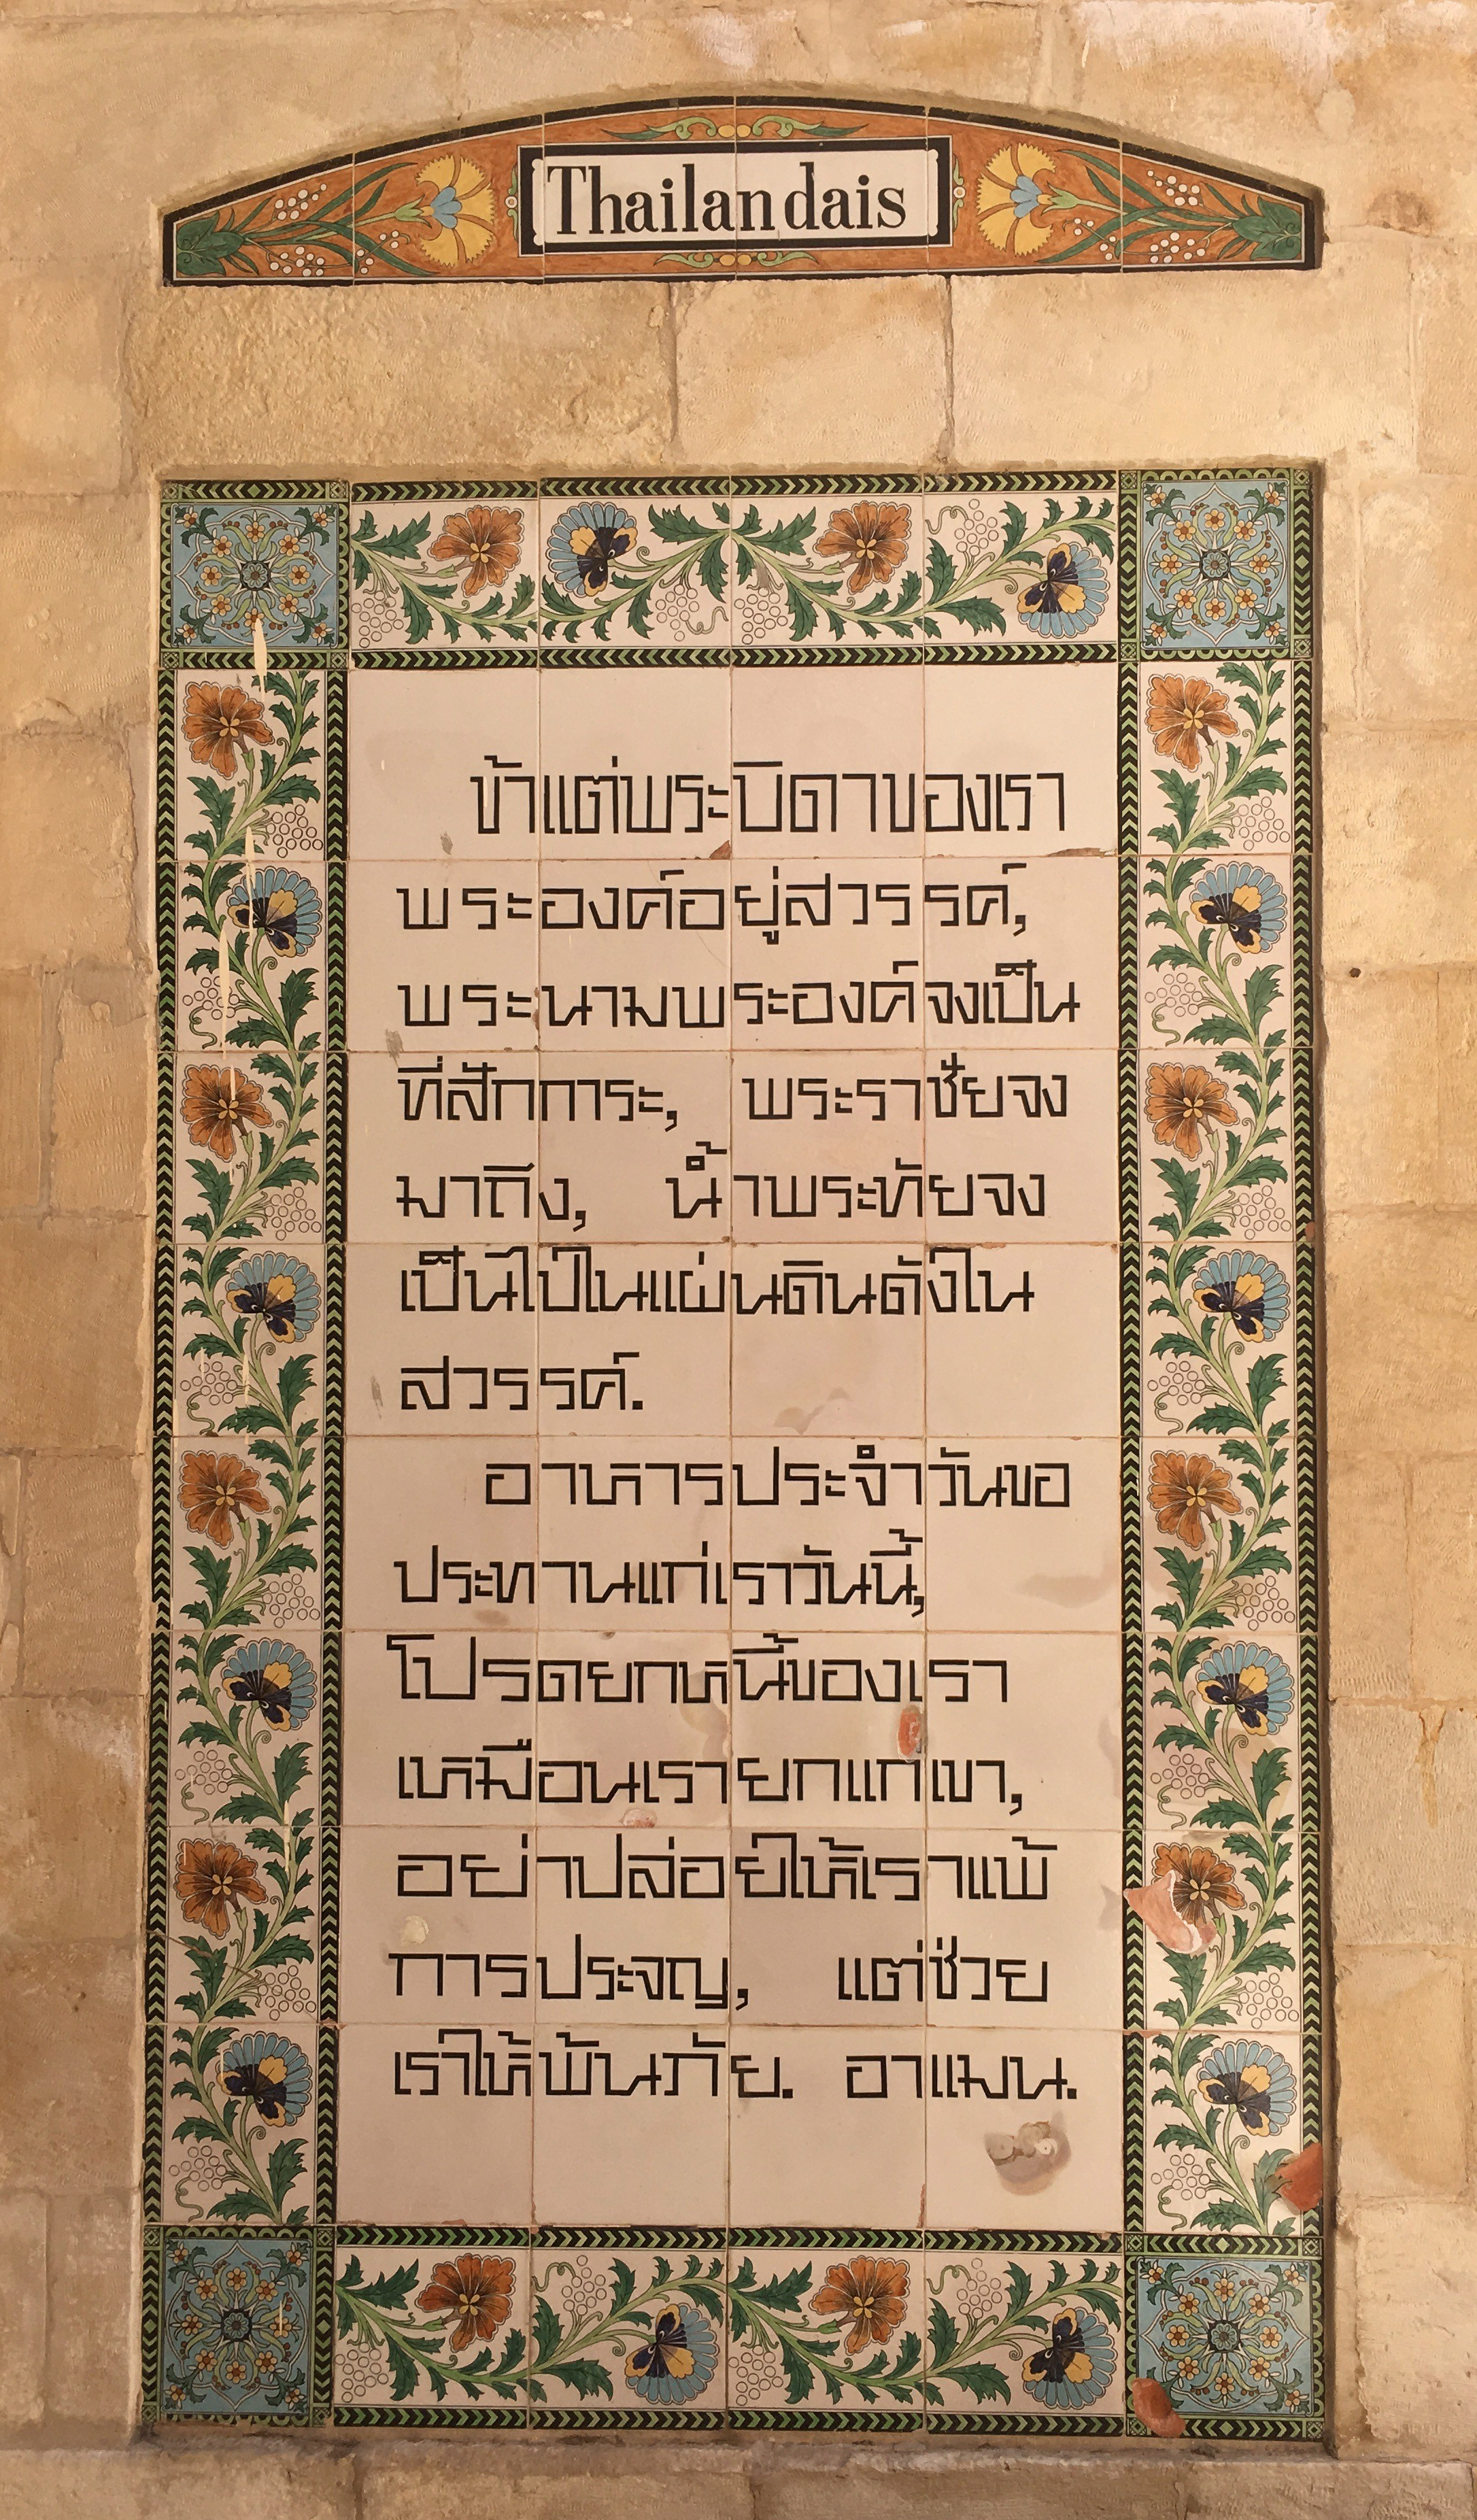 Thailandais
ข้าแต่พระบิดาของเรา
พระองค์อยู่สวรรค์,
พระนามพระองค์จงเป็น
ที่สักการะ, พระราชัยจง
มาถึง, น้ำพระทัยจง
เป็นไปในแผ่นดินดังใน
สวรรค์.
อาหารประจำวันขอ
ประทานแก่เราวันนี้,
โปรดยกหนี้ของเรา
เหมือนเรายกแก่เขา,
อย่าปล่อยให้เราแพ้
การประจญ, แต่ช่วย
เราให้พ้นภัย. อาแมน.